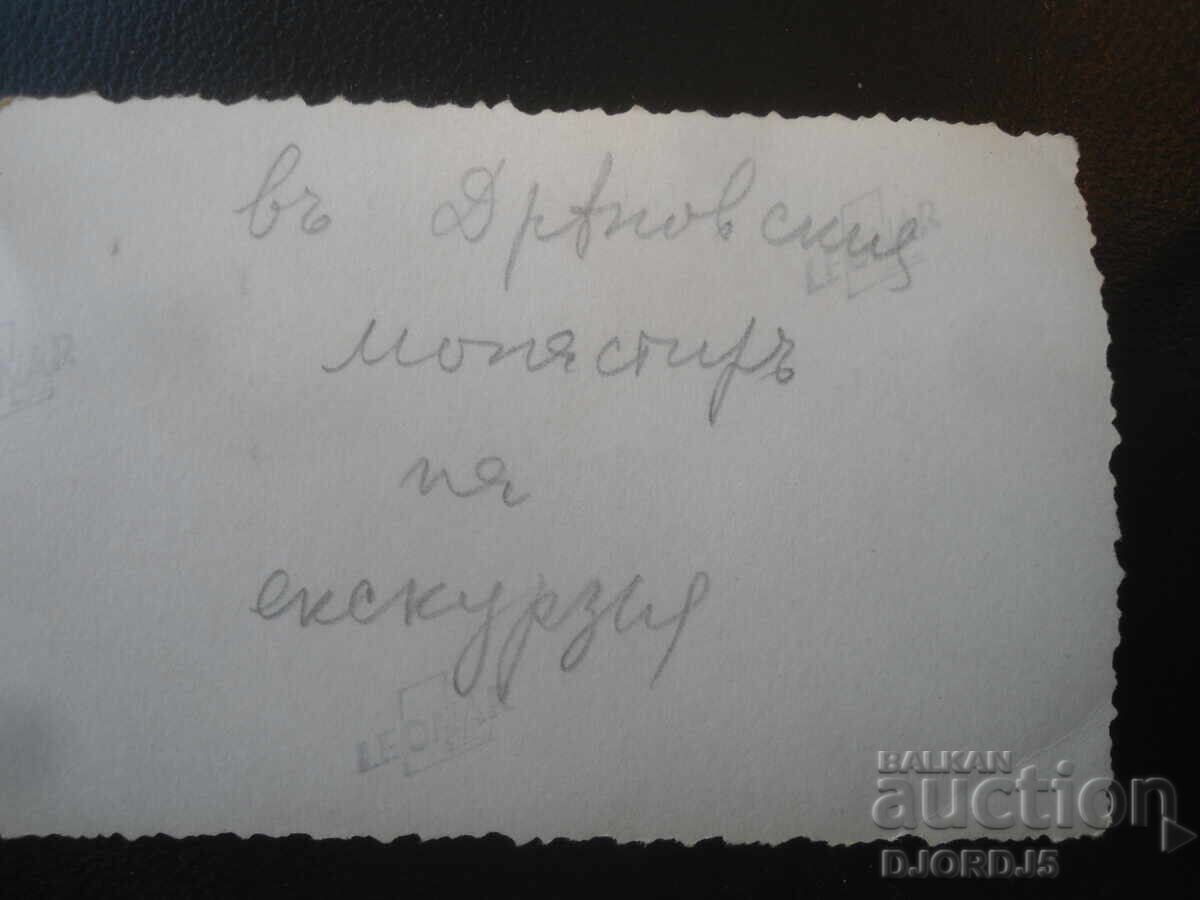 въ Дряновския
монастиръ
на
екскурзия
LEONAR
BALKAN
auction
DJORDJ5